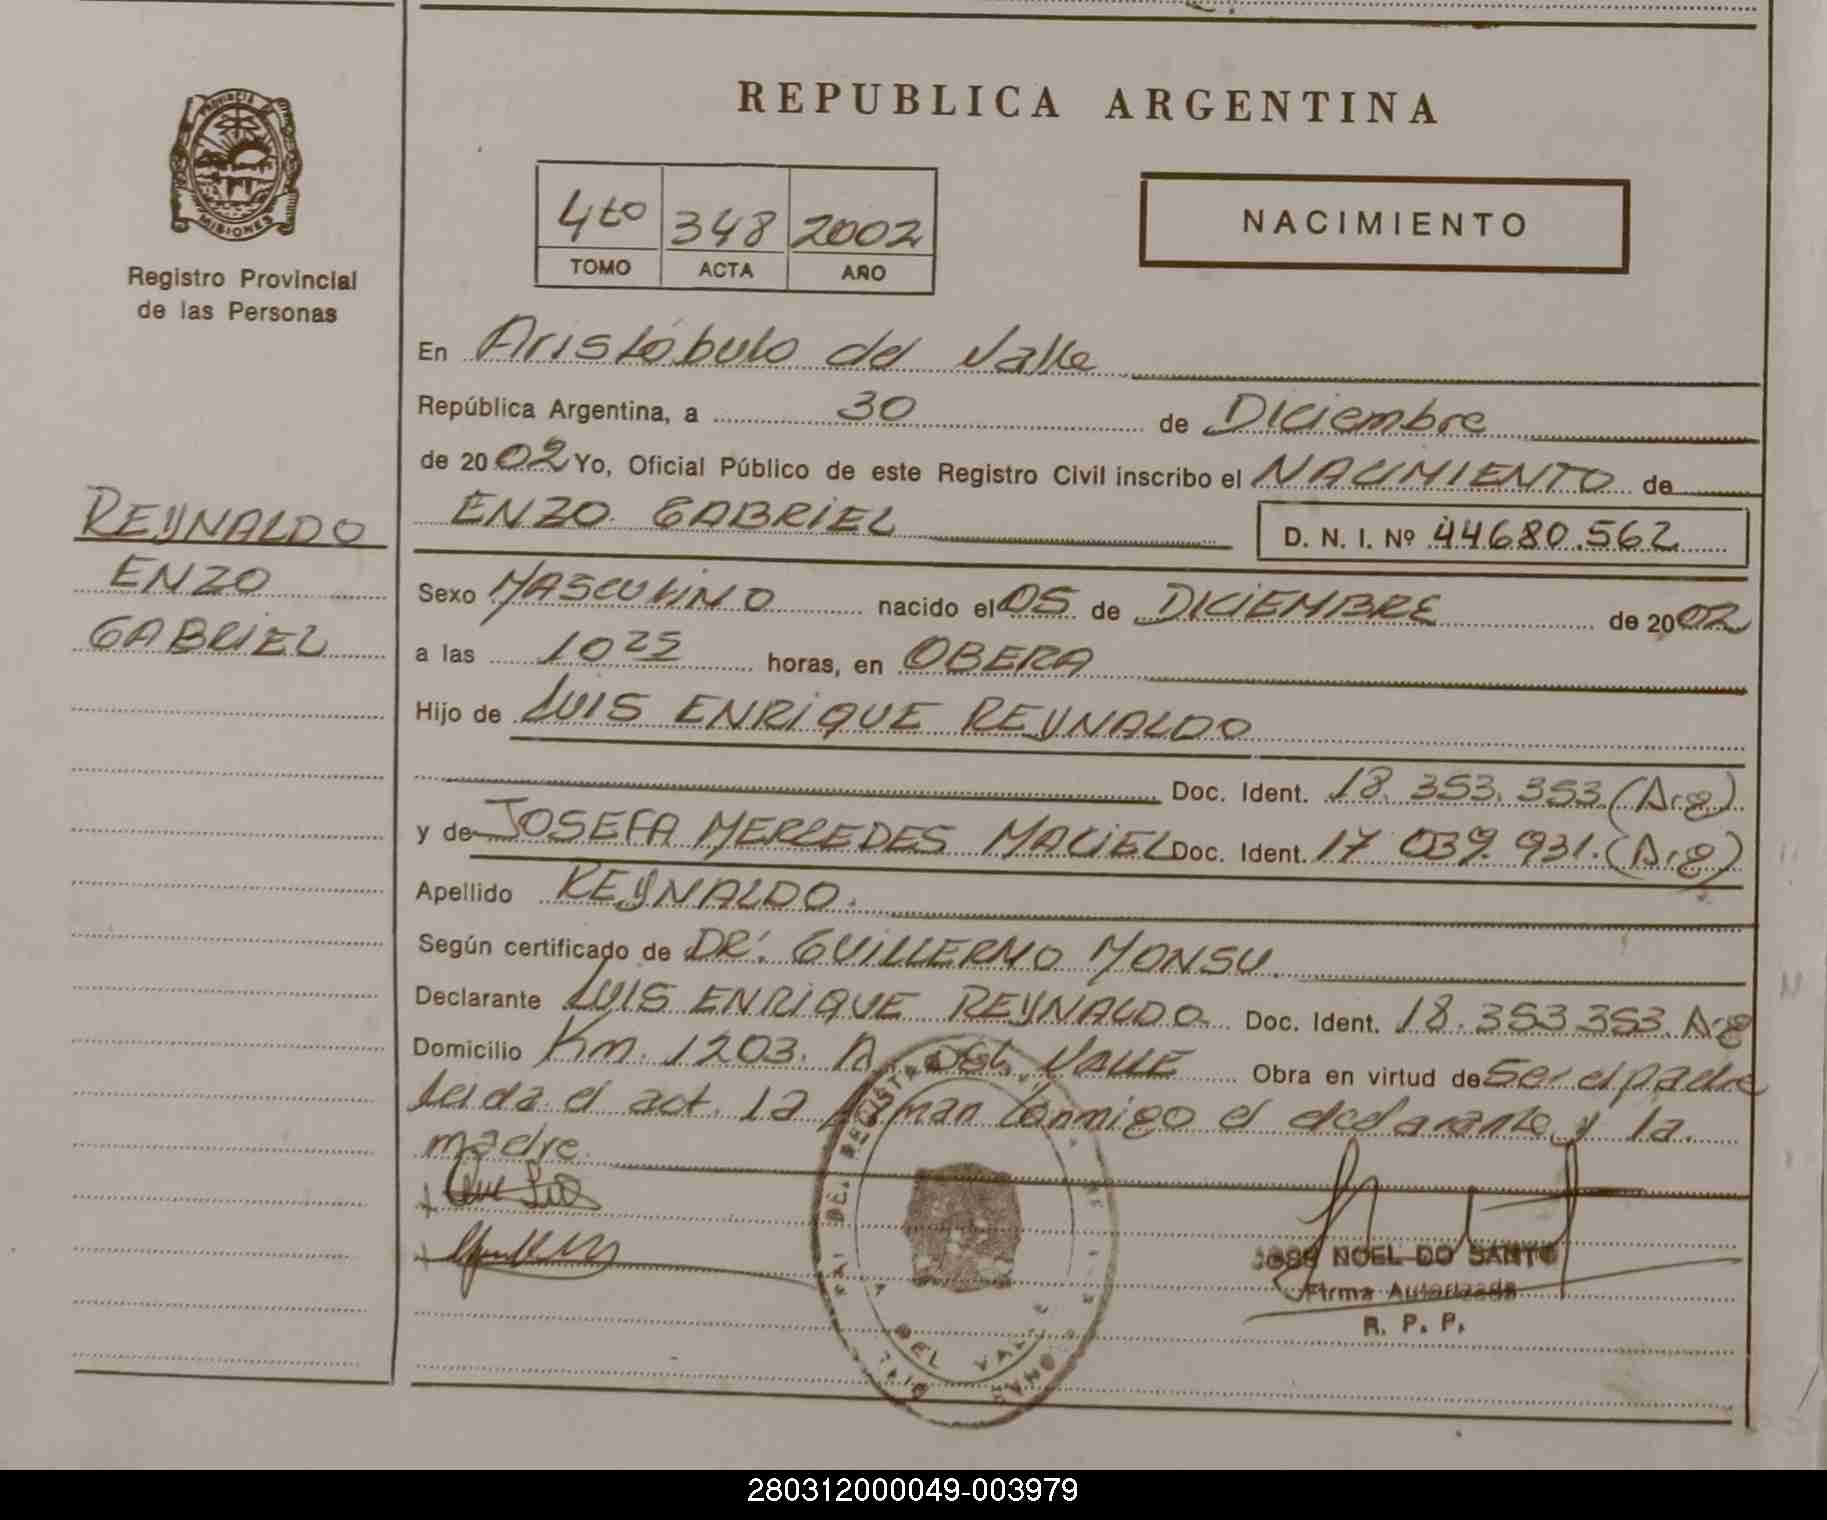 REPUBLICA ARGENTINA
PROVINCIA DE
MISIONES
Registro Provincial
de las Personas
4to 348 2002
TOMO ACTA AÑO
NACIMIENTO
En Aristóbulo del Valle
República Argentina, a 30 de Diciembre
de 2002 Yo, Oficial Público de este Registro Civil inscribo el NACIMIENTO de
ENZO GABRIEL D. N. I. Nº 44680.562
REYNALDO
ENZO
GABRIEL
Sexo MASCULINO nacido el 05 de DICIEMBRE de 2002
a las 10 25 horas, en OBERA
Hijo de LUIS ENRIQUE REYNALDO
Doc. Ident. 18.353.353 (Arg)
y de JOSEFA MERCEDES MACIEL Doc. Ident. 17 039.931. (Arg)
Apellido REYNALDO.
Según certificado de DR. GUILLERMO MONSU.
Declarante LUIS ENRIQUE REYNALDO Doc. Ident. 18.353353. Arg
Domicilio Km. 1203. A. del. VALLE Obra en virtud de Ser el padre
Leida el act. la firman conmigo el declarante y la
madre.
JOSE NOEL DO SANTO
Firma Autorizada
R. P. P.
DEL VALLE
280312000049-003979